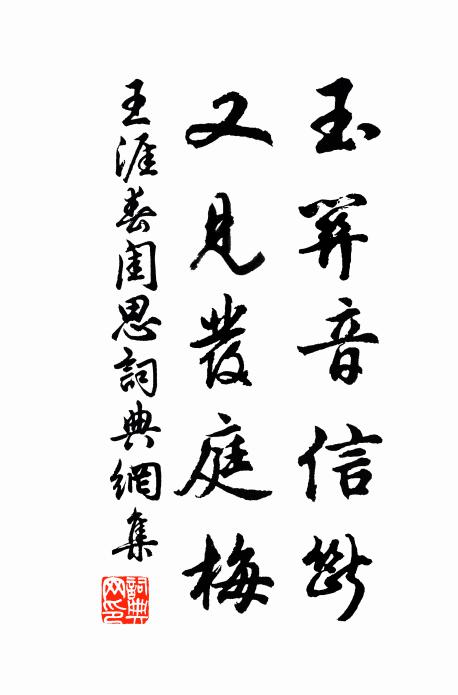 玉關音信斷
又見發庭梅
王涯春閨思詞典網集
詞典网印